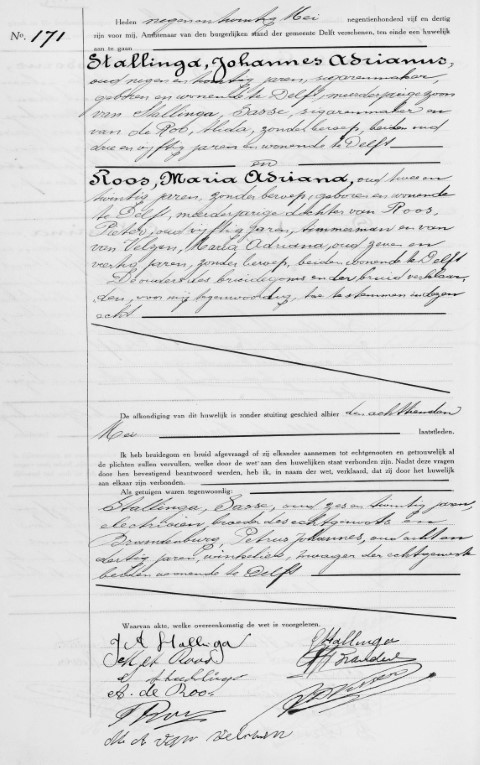 Heden negenentwintig Mei negentienhonderd vijf en dertig
No. 171 zijn voor mij, Ambtenaar van den burgerlijken stand der gemeente Delft verschenen, ten einde een huwelijk
aan te gaan
Stallinga, Johannes Adrianus,
oud negen en twintig jaren, sigarenmaker,
geboren en wonende te Delft, meerderjarige zoon
van Stallinga, Sasse, sigarenmaker en
van de Roo, Alida, zonder beroep, beiden oud
drie en vijftig jaren en wonende te Delft
en
Roos, Maria Adriana, oud twee en
twintig jaren, zonder beroep, geboren en wonende
te Delft, meerderjarige dochter van Roos,
Pieter, oud vijftig jaren, timmerman en van
van Velzen, Maria Adriana, oud zeven en
veertig jaren, zonder beroep, beiden wonende te Delft
De ouders des bruidegoms en der bruid verklaar-
den, voor mij tegenwoordig, toe te stemmen in dezen
echt
De afkondiging van dit huwelijk is zonder stuiting geschied alhier den achttienden
Mei laatstleden.
Ik heb bruidegom en bruid afgevraagd of zij elkander aannemen tot echtgenooten en getrouwelijk al
de plichten zullen vervullen, welke door de wet aan den huwelijken staat verbonden zijn. Nadat deze vragen
door hen bevestigend beantwoord werden, heb ik, in naam der wet, verklaard, dat zij door het huwelijk
aan elkaar zijn verbonden.
Als getuigen waren tegenwoordig:
Stallinga, Sasse, oud zes en twintig jaren,
electricien, broeder des echtgenoots en
Brandenburg, Petrus Johannes, oud acht en
dertig jaren, zwager der echtgenoote
beiden wonende te Delft
Waarvan akte, welke overeenkomstig de wet is voorgelezen.
J A Stallinga
Stallinga
M A Roos
A. de Roo
P Roos
M A van Velzen